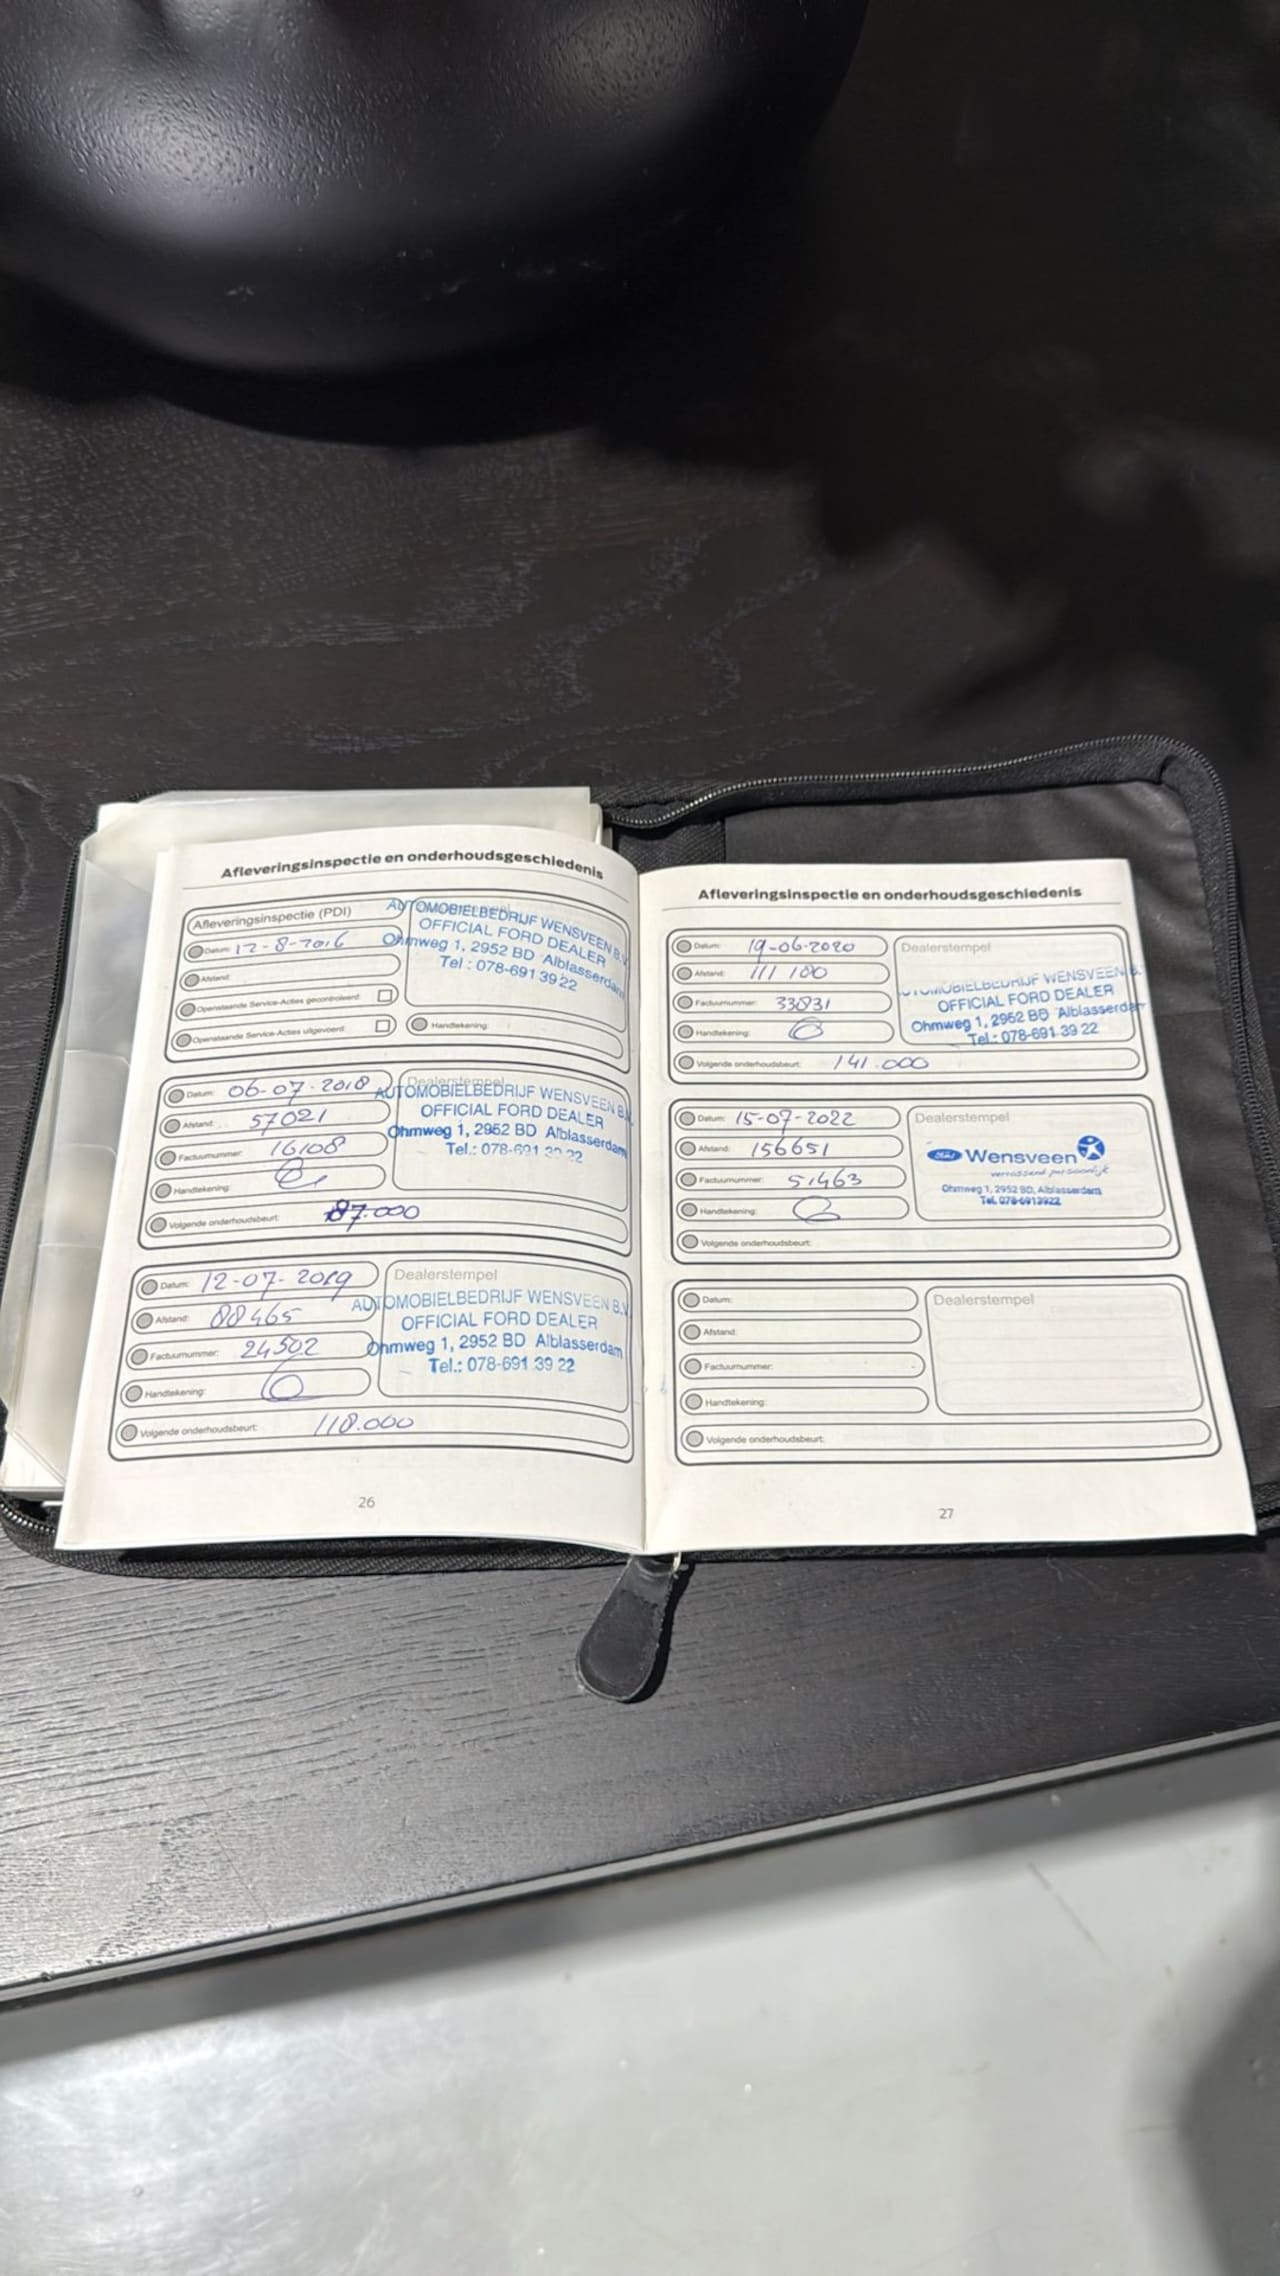 Afleveringsinspectie en onderhoudsgeschiedenis
Afleveringsinspectie (PDI)
Datum: 12-8-2016
Afstand:
Openstaande Service-Acties gecontroleerd:
Openstaande Service-Acties uitgevoerd:
Handtekening:
AUTOMOBIELBEDRIJF WENSVEEN B.V.
OFFICIAL FORD DEALER
Ohmweg 1, 2952 BD Alblasserdam
Tel : 078-691 39 22
Datum: 06-07-2018
Afstand: 57021
Factuurnummer: 16108
Handtekening:
Volgende onderhoudsbeurt: 87.000
Dealerstempel
AUTOMOBIELBEDRIJF WENSVEEN B.V.
OFFICIAL FORD DEALER
Ohmweg 1, 2952 BD Alblasserdam
Tel.: 078-691 39 22
Datum: 12-07-2019
Afstand: 88465
Factuurnummer: 24502
Handtekening:
Volgende onderhoudsbeurt: 118.000
Dealerstempel
AUTOMOBIELBEDRIJF WENSVEEN B.V.
OFFICIAL FORD DEALER
Ohmweg 1, 2952 BD Alblasserdam
Tel.: 078-691 39 22
26
Afleveringsinspectie en onderhoudsgeschiedenis
Datum: 19-06-2020
Afstand: 111 100
Factuurnummer: 33831
Handtekening:
Volgende onderhoudsbeurt: 141.000
Dealerstempel
AUTOMOBIELBEDRIJF WENSVEEN B.
OFFICIAL FORD DEALER
Ohmweg 1, 2952 BD Alblasserdam
Tel.: 078-691 39 22
Datum: 15-07-2022
Afstand: 156651
Factuurnummer: 51463
Handtekening:
Volgende onderhoudsbeurt:
Dealerstempel
Ford Wensveen
verrassend persoonlijk
Ohmweg 1, 2952 BD, Alblasserdam
Tel. 078-6913922
Datum:
Afstand:
Factuurnummer:
Handtekening:
Volgende onderhoudsbeurt:
Dealerstempel
27